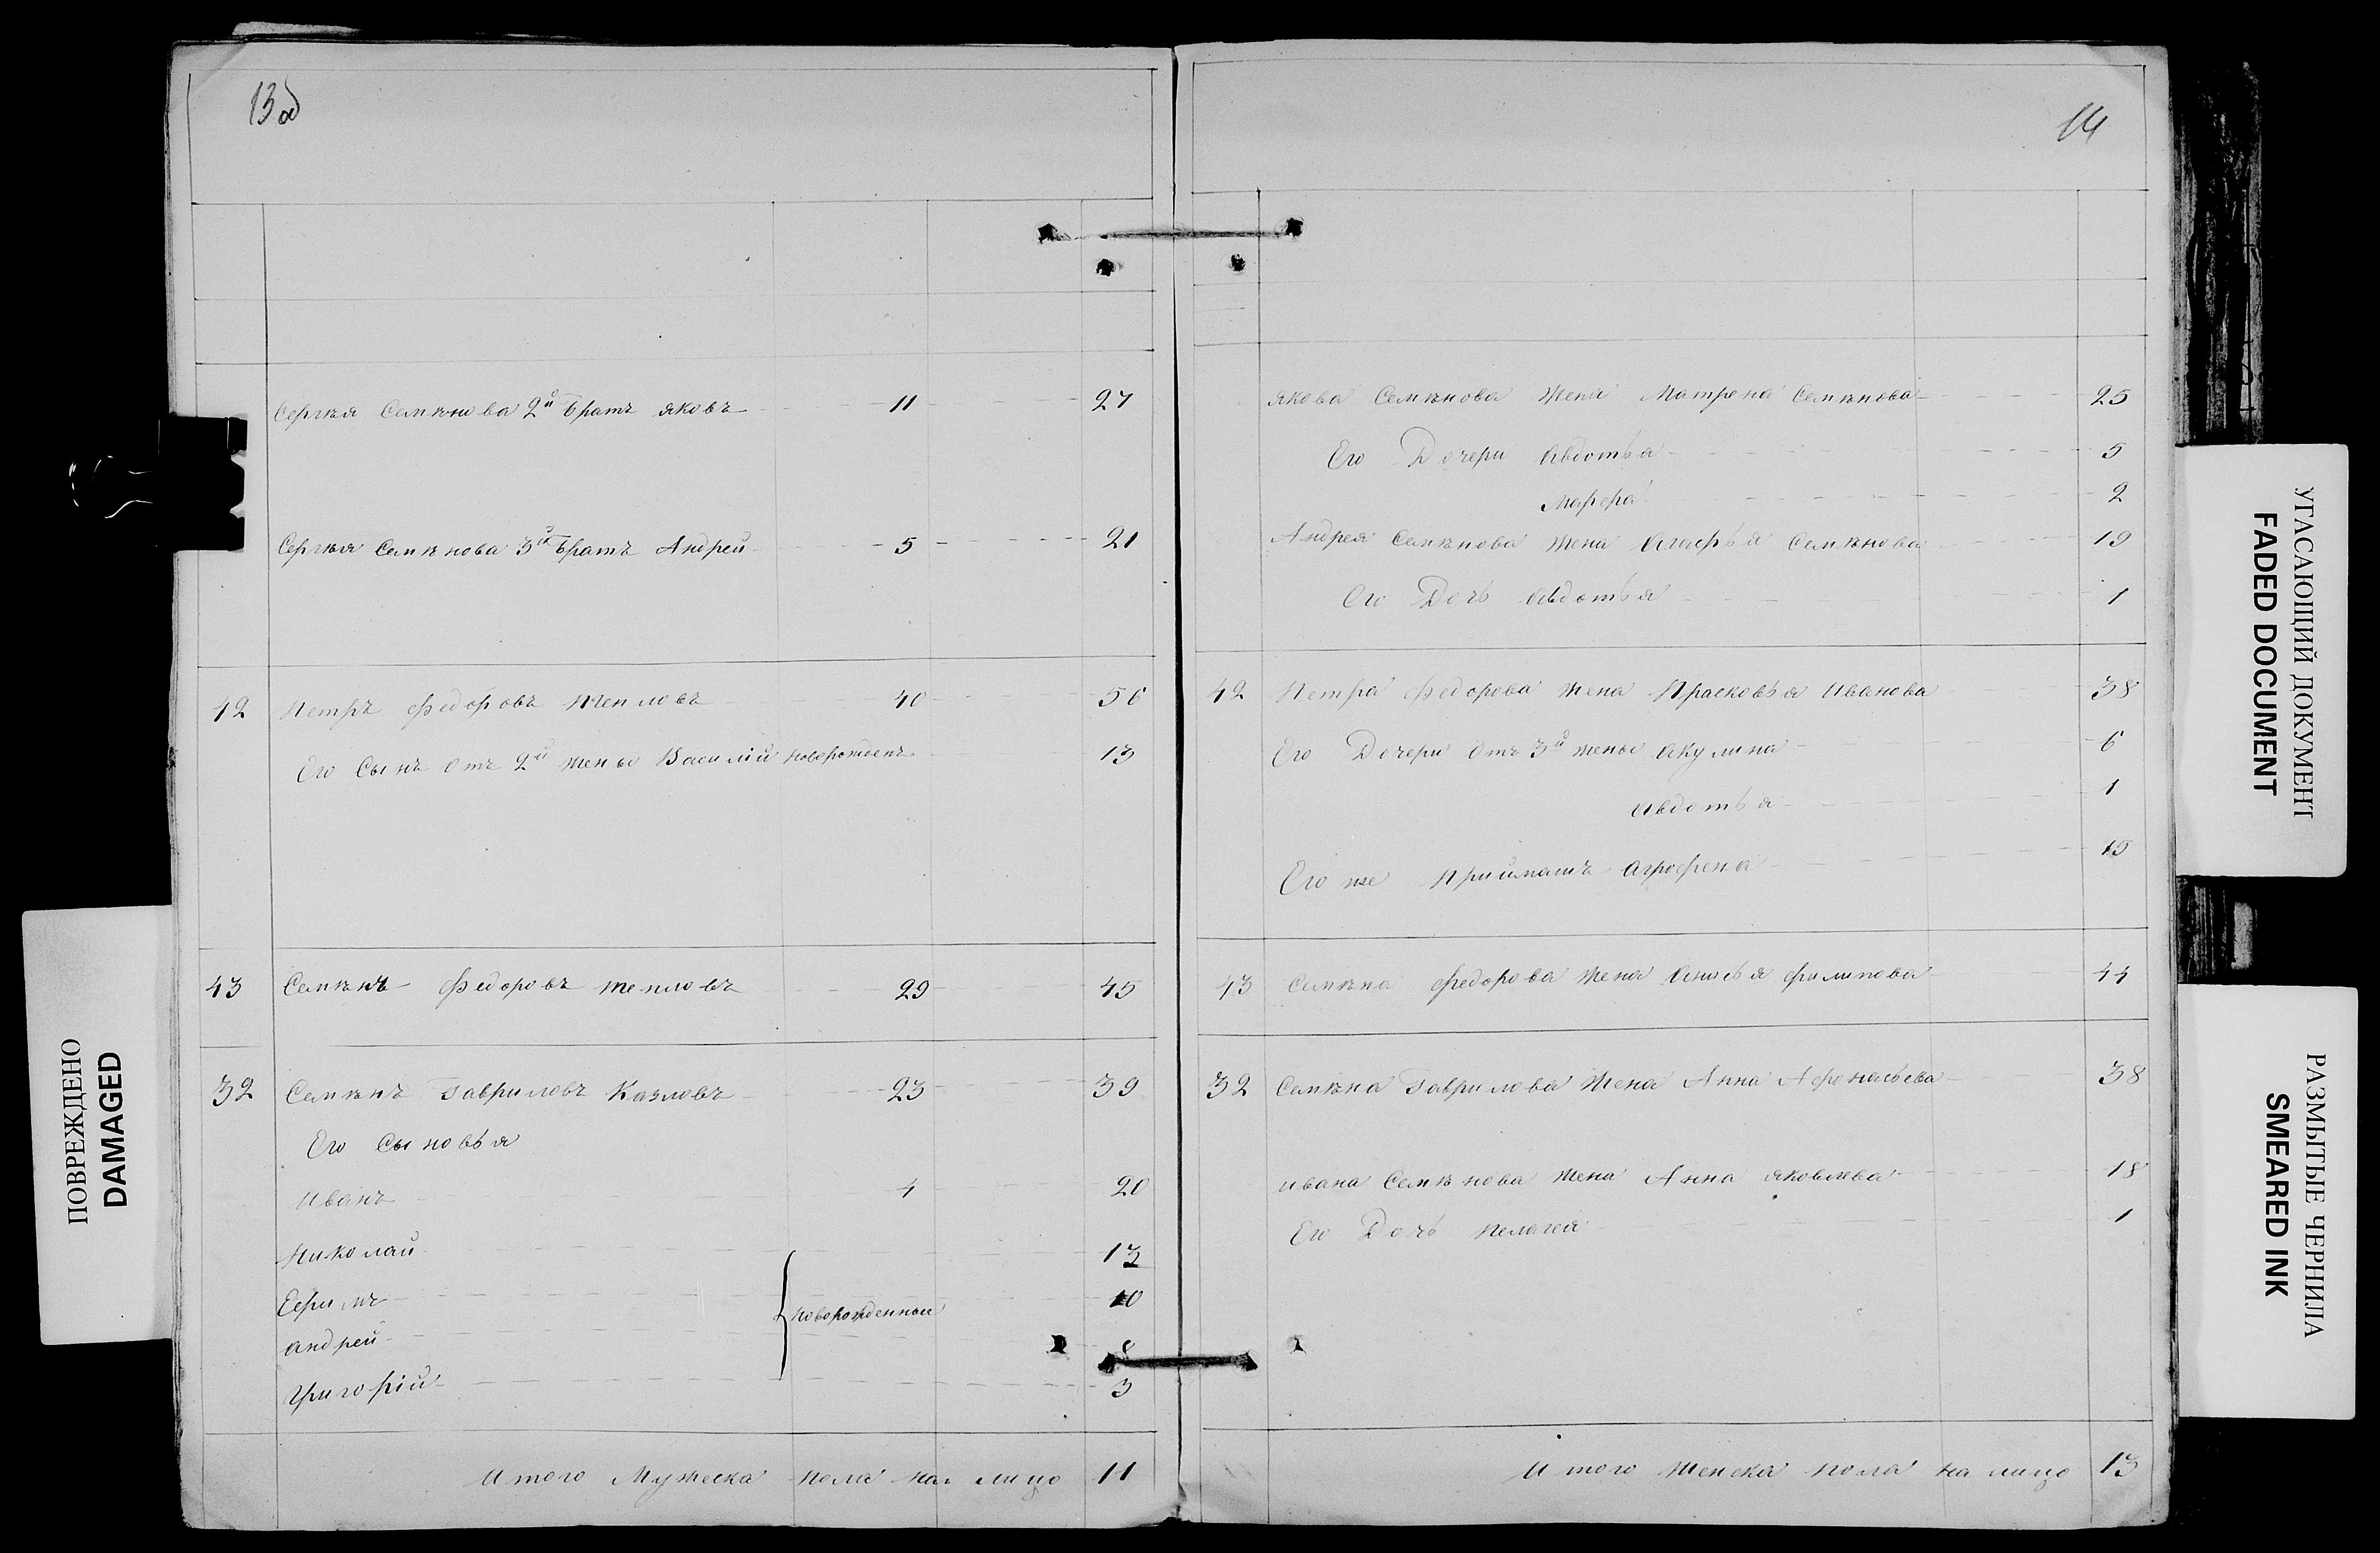 13об
Сергѣя Семѣнова 2й Братъ яковъ 11 27
Сергѣя Семѣнова 3й Братъ Андрей 5 21
42 Петръ Федоровъ Тепловъ 40 56
Его Сынъ Отъ 2й жены Василій новорожденъ 13
43 Семѣнъ Федоровъ тепловъ 29 45
32 Семѣнъ Гавриловъ Казловъ 23 39
Его Сыновья
иванъ 4 20
Николай 13
Ефимъ 10
новорожденные
андрей
григорій 3
Итого Мужеска пола на лицо 11
14
якова Семѣнова Жена Матрена Семѣнова 25
Его Дочери Авдотья 5
Марфа 2
Андрея Семѣнова Жена Агафья Семѣнова 19
Его Дочь Авдотья 1
42 Петра Федорова жена Прасковья Иванова 38
Его Дочери Отъ 3й жены Акулина 6
Авдотья 1
Его же Прииматъ Агрофена 15
43 Семѣна Федорова Жена Анисья филипова 44
32 Семѣна Гаврилова Жена Анна Афонасьева 38
ивана Семѣнова Жена Анна яковлева 18
Его Дочь Пелагея 1
Итого Женска пола на лицо 13
ПОВРЕЖДЕНО
DAMAGED
УГАСАЮЩИЙ ДОКУМЕНТ
FADED DOCUMENT
РАЗМЫТЫЕ ЧЕРНИЛА
SMEARED INK